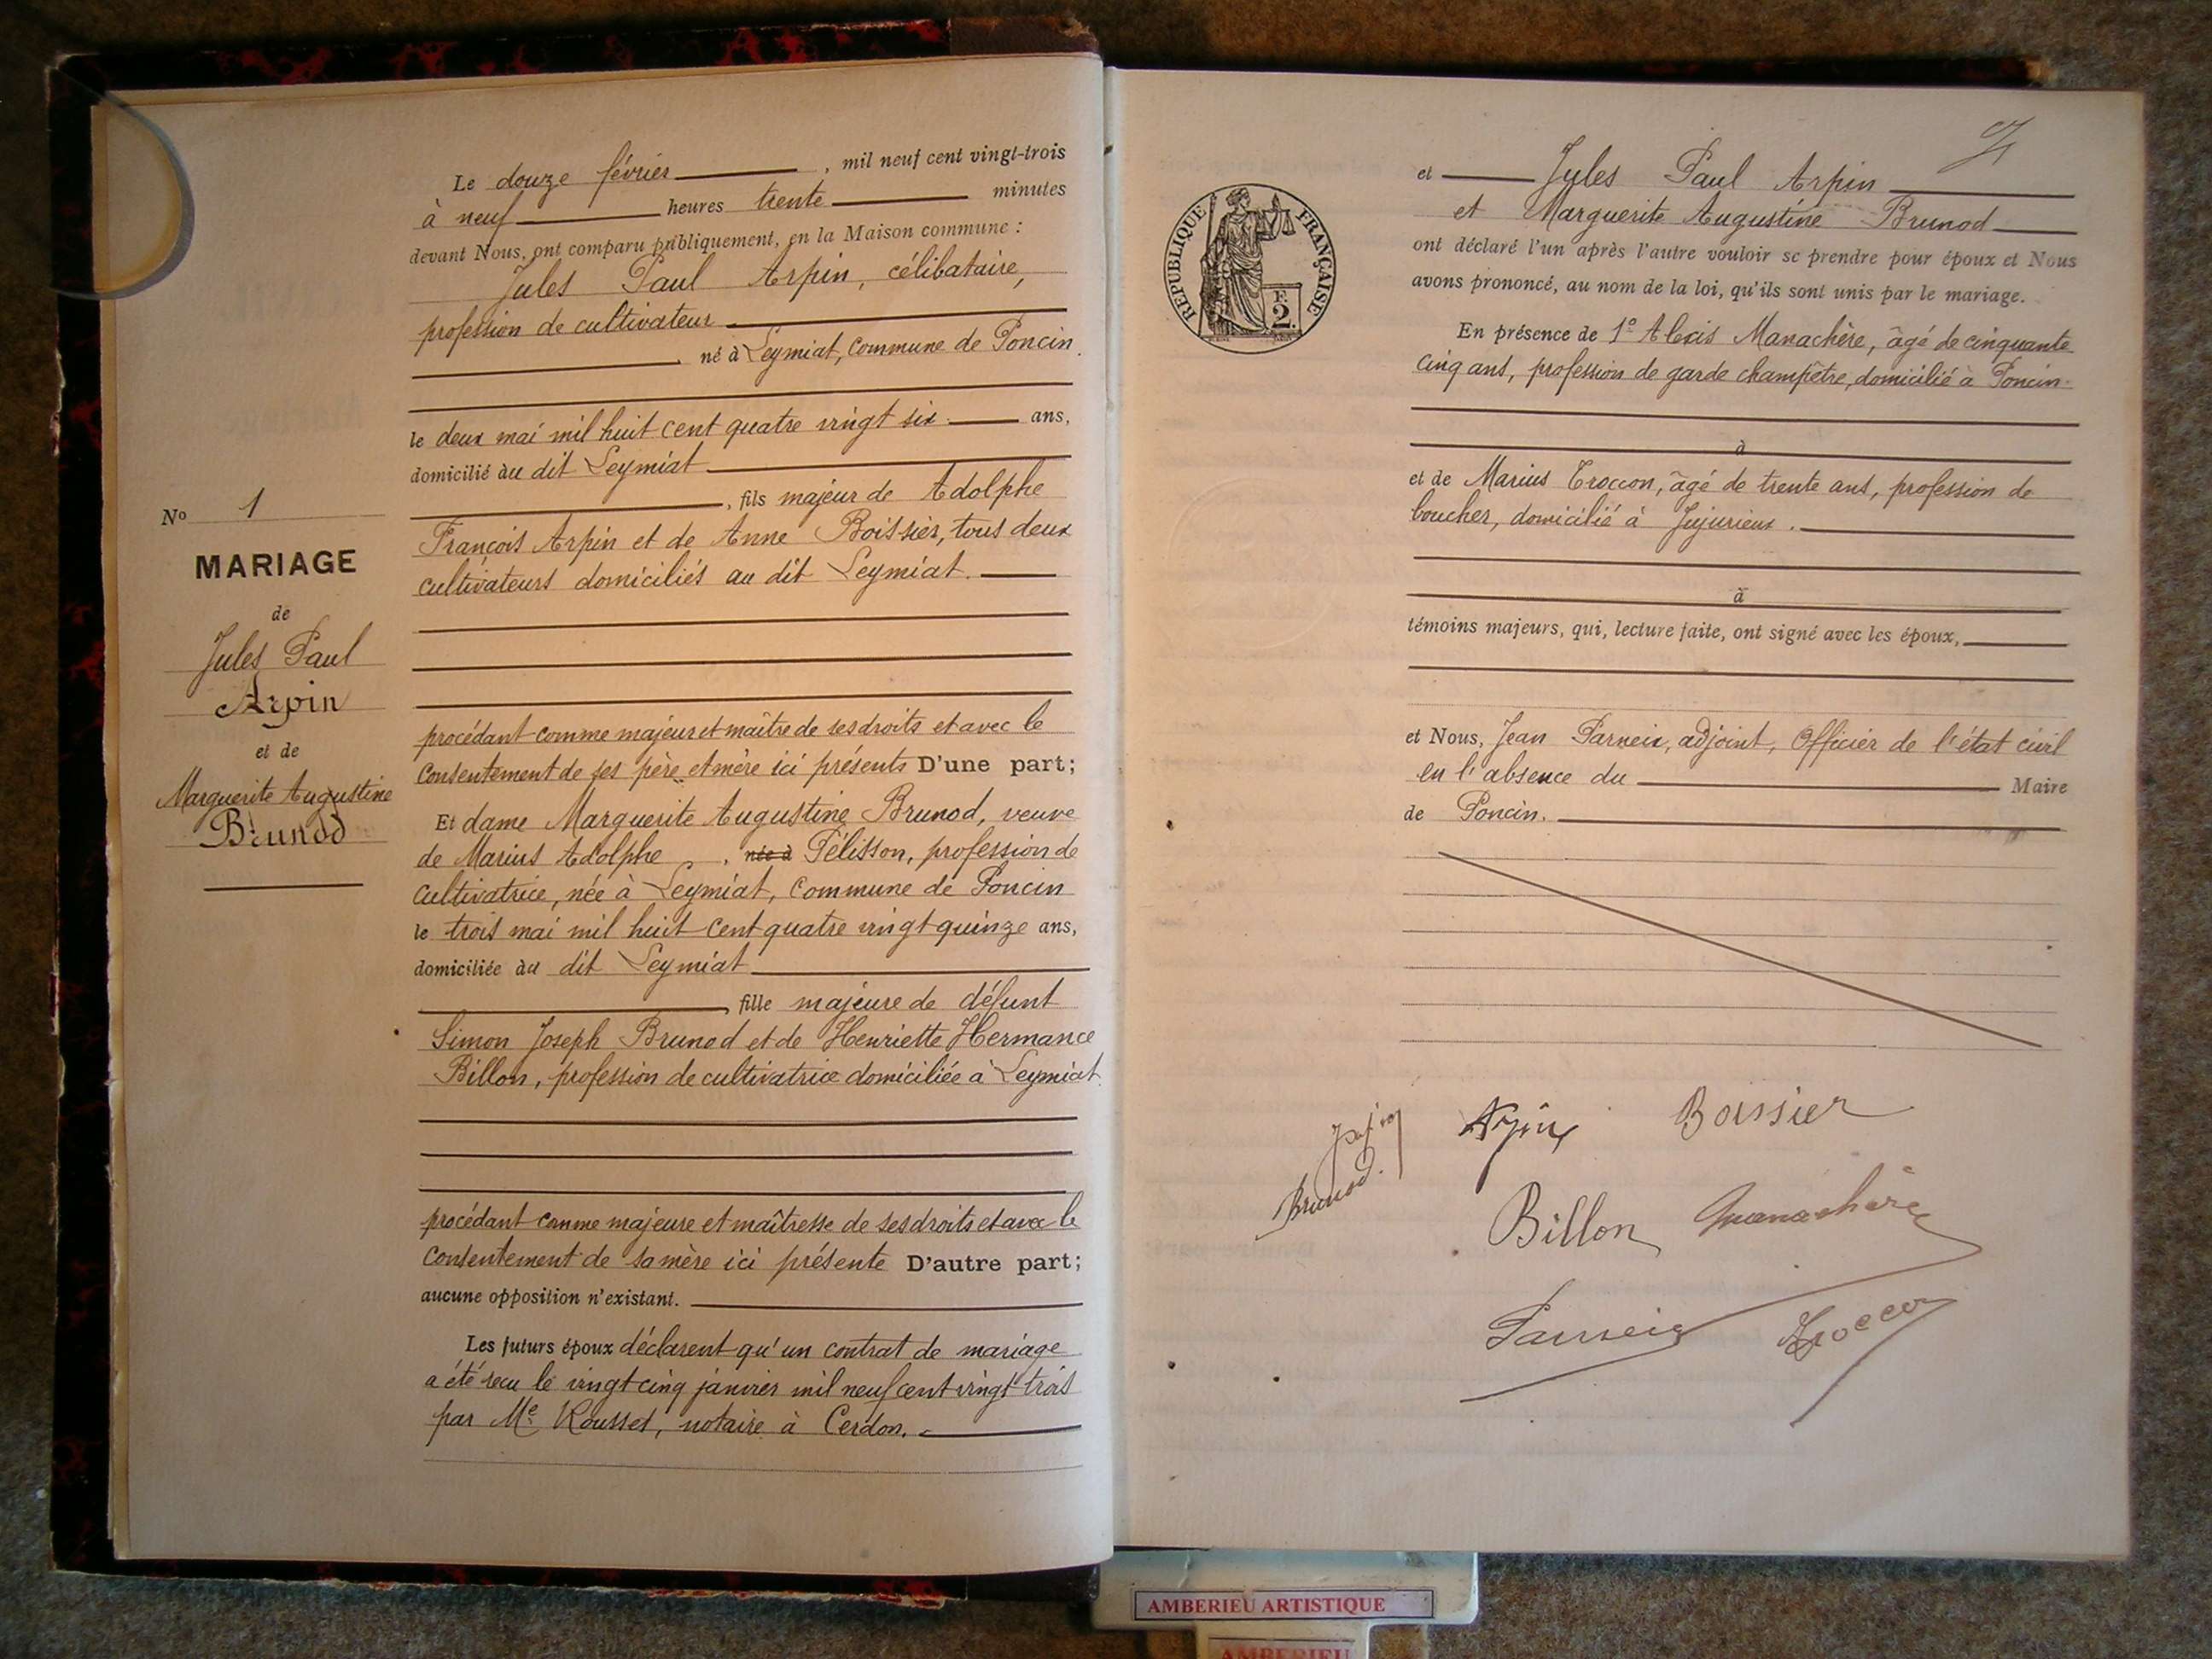 Le douze février, mil neuf cent vingt-trois
à neuf heures trente minutes
devant Nous, ont comparu publiquement, en la Maison commune :
Jules Paul Arpin, célibataire,
profession de cultivateur
né à Leymiat, commune de Poncin.
le deux mai mil huit cent quatre vingt six ans,
domicilié au dit Leymiat
, fils majeur de Adolphe
François Arpin et de Anne Boissier, tous deux
cultivateurs domiciliés au dit Leymiat.
procédant comme majeur et maître de ses droits et avec le
consentement de ses père et mère ici présents D'une part;
Et dame Marguerite Augustine Brunod, veuve
de Marius Adolphe, née à Pélisson, profession de
cultivatrice, née à Leymiat, commune de Poncin
le trois mai mil huit cent quatre vingt quinze ans,
domiciliée au dit Leymiat
, fille majeure de défunt
Simon Joseph Brunod et de Henriette Hermance
Billon, profession de cultivatrice domiciliée à Leymiat
procédant comme majeure et maîtresse de ses droits et avec le
consentement de sa mère ici présente D'autre part;
aucune opposition n'existant.
Les futurs époux déclarent qu'un contrat de mariage
a été reçu le vingt cinq janvier mil neuf cent vingt trois
par Me Rousset, notaire à Cerdon.
No 1
MARIAGE
de
Jules Paul
Arpin
et de
Marguerite Augustine
Brunod
RÉPUBLIQUE FRANÇAISE
F.
2.
et Jules Paul Arpin
et Marguerite Augustine Brunod
ont déclaré l'un après l'autre vouloir se prendre pour époux et Nous
avons prononcé, au nom de la loi, qu'ils sont unis par le mariage.
En présence de 1o Alexis Manachère, âgé de cinquante
cinq ans, profession de garde champêtre, domicilié à Poncin
à
et de Marius Troccon, âgé de trente ans, profession de
boucher, domicilié à Jujurieux.
à
témoins majeurs, qui, lecture faite, ont signé avec les époux,
et Nous, Jean Parneix, adjoint, Officier de l'état civil
en l'absence du Maire
de Poncin.
Arpin Boissier
Brunod.
Billon Manachère
Parneix Troccon
AMBERIEU ARTISTIQUE
AMBERIEU